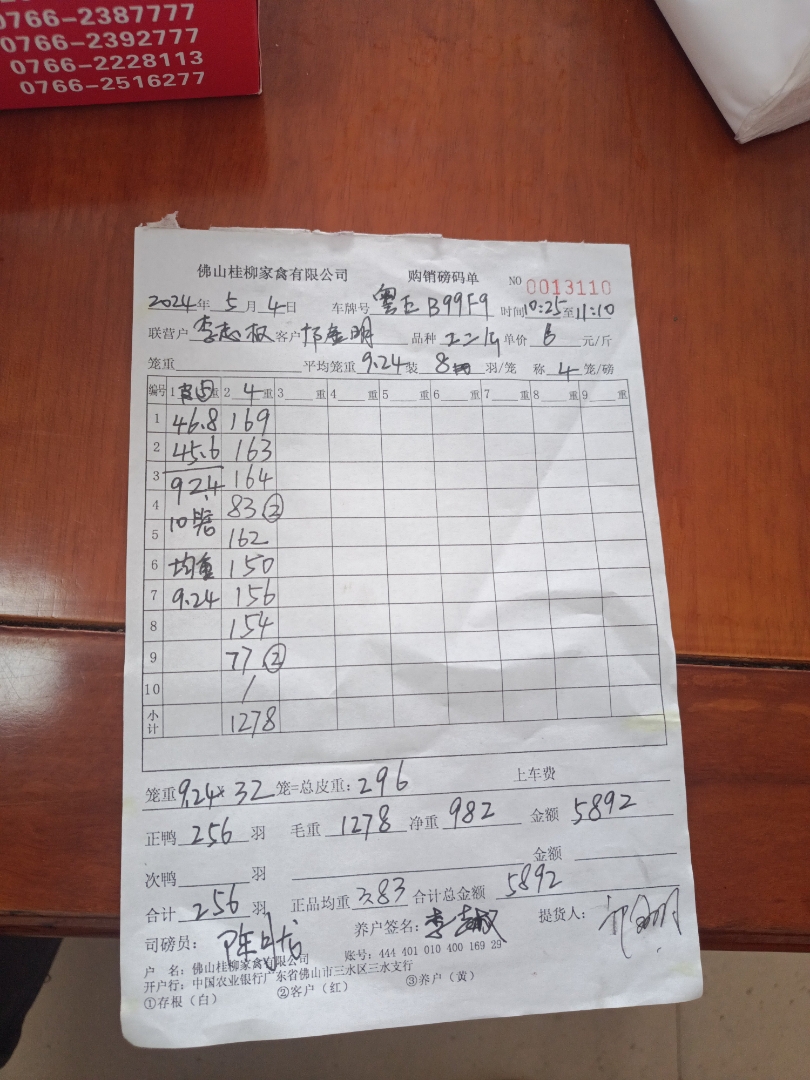 0766-2387777
0766-2392777
0766-2228113
0766-2516277
佛山桂柳家禽有限公司 购销磅码单 NO 0013110
2024年 5月 4日 车牌号 粤E B99F9 时间10:25至11:10
联营户 李志权 客户 明 品种 单价 6 元/斤
笼重 平均笼重 9.24 装 8 羽/笼 称 4 笼/磅
编号 1 皮 重 2 4 重 3 重 4 重 5 重 6 重 7 重 8 重 9 重
1 46.8 169
2 45.6 163
3 92.4 164
4 10 83 ②
5 162
6 均重 150
7 9.24 156
8 154
9 77 ②
10 /
小计 1278
笼重 9.24 × 32 笼=总皮重: 296 上车费
正鸭 256 羽 毛重 1278 净重 982 金额 5892
次鸭 羽 金额
合计 256 羽 正品均重 3.83 合计总金额 5892
司磅员: 养户签名: 李志权 提货人:
户 名: 佛山桂柳家禽有限公司 账号: 444 401 010 400 169 29
开户行: 中国农业银行广东省佛山市三水区三水支行
①存根(白) ②客户(红) ③养户(黄)